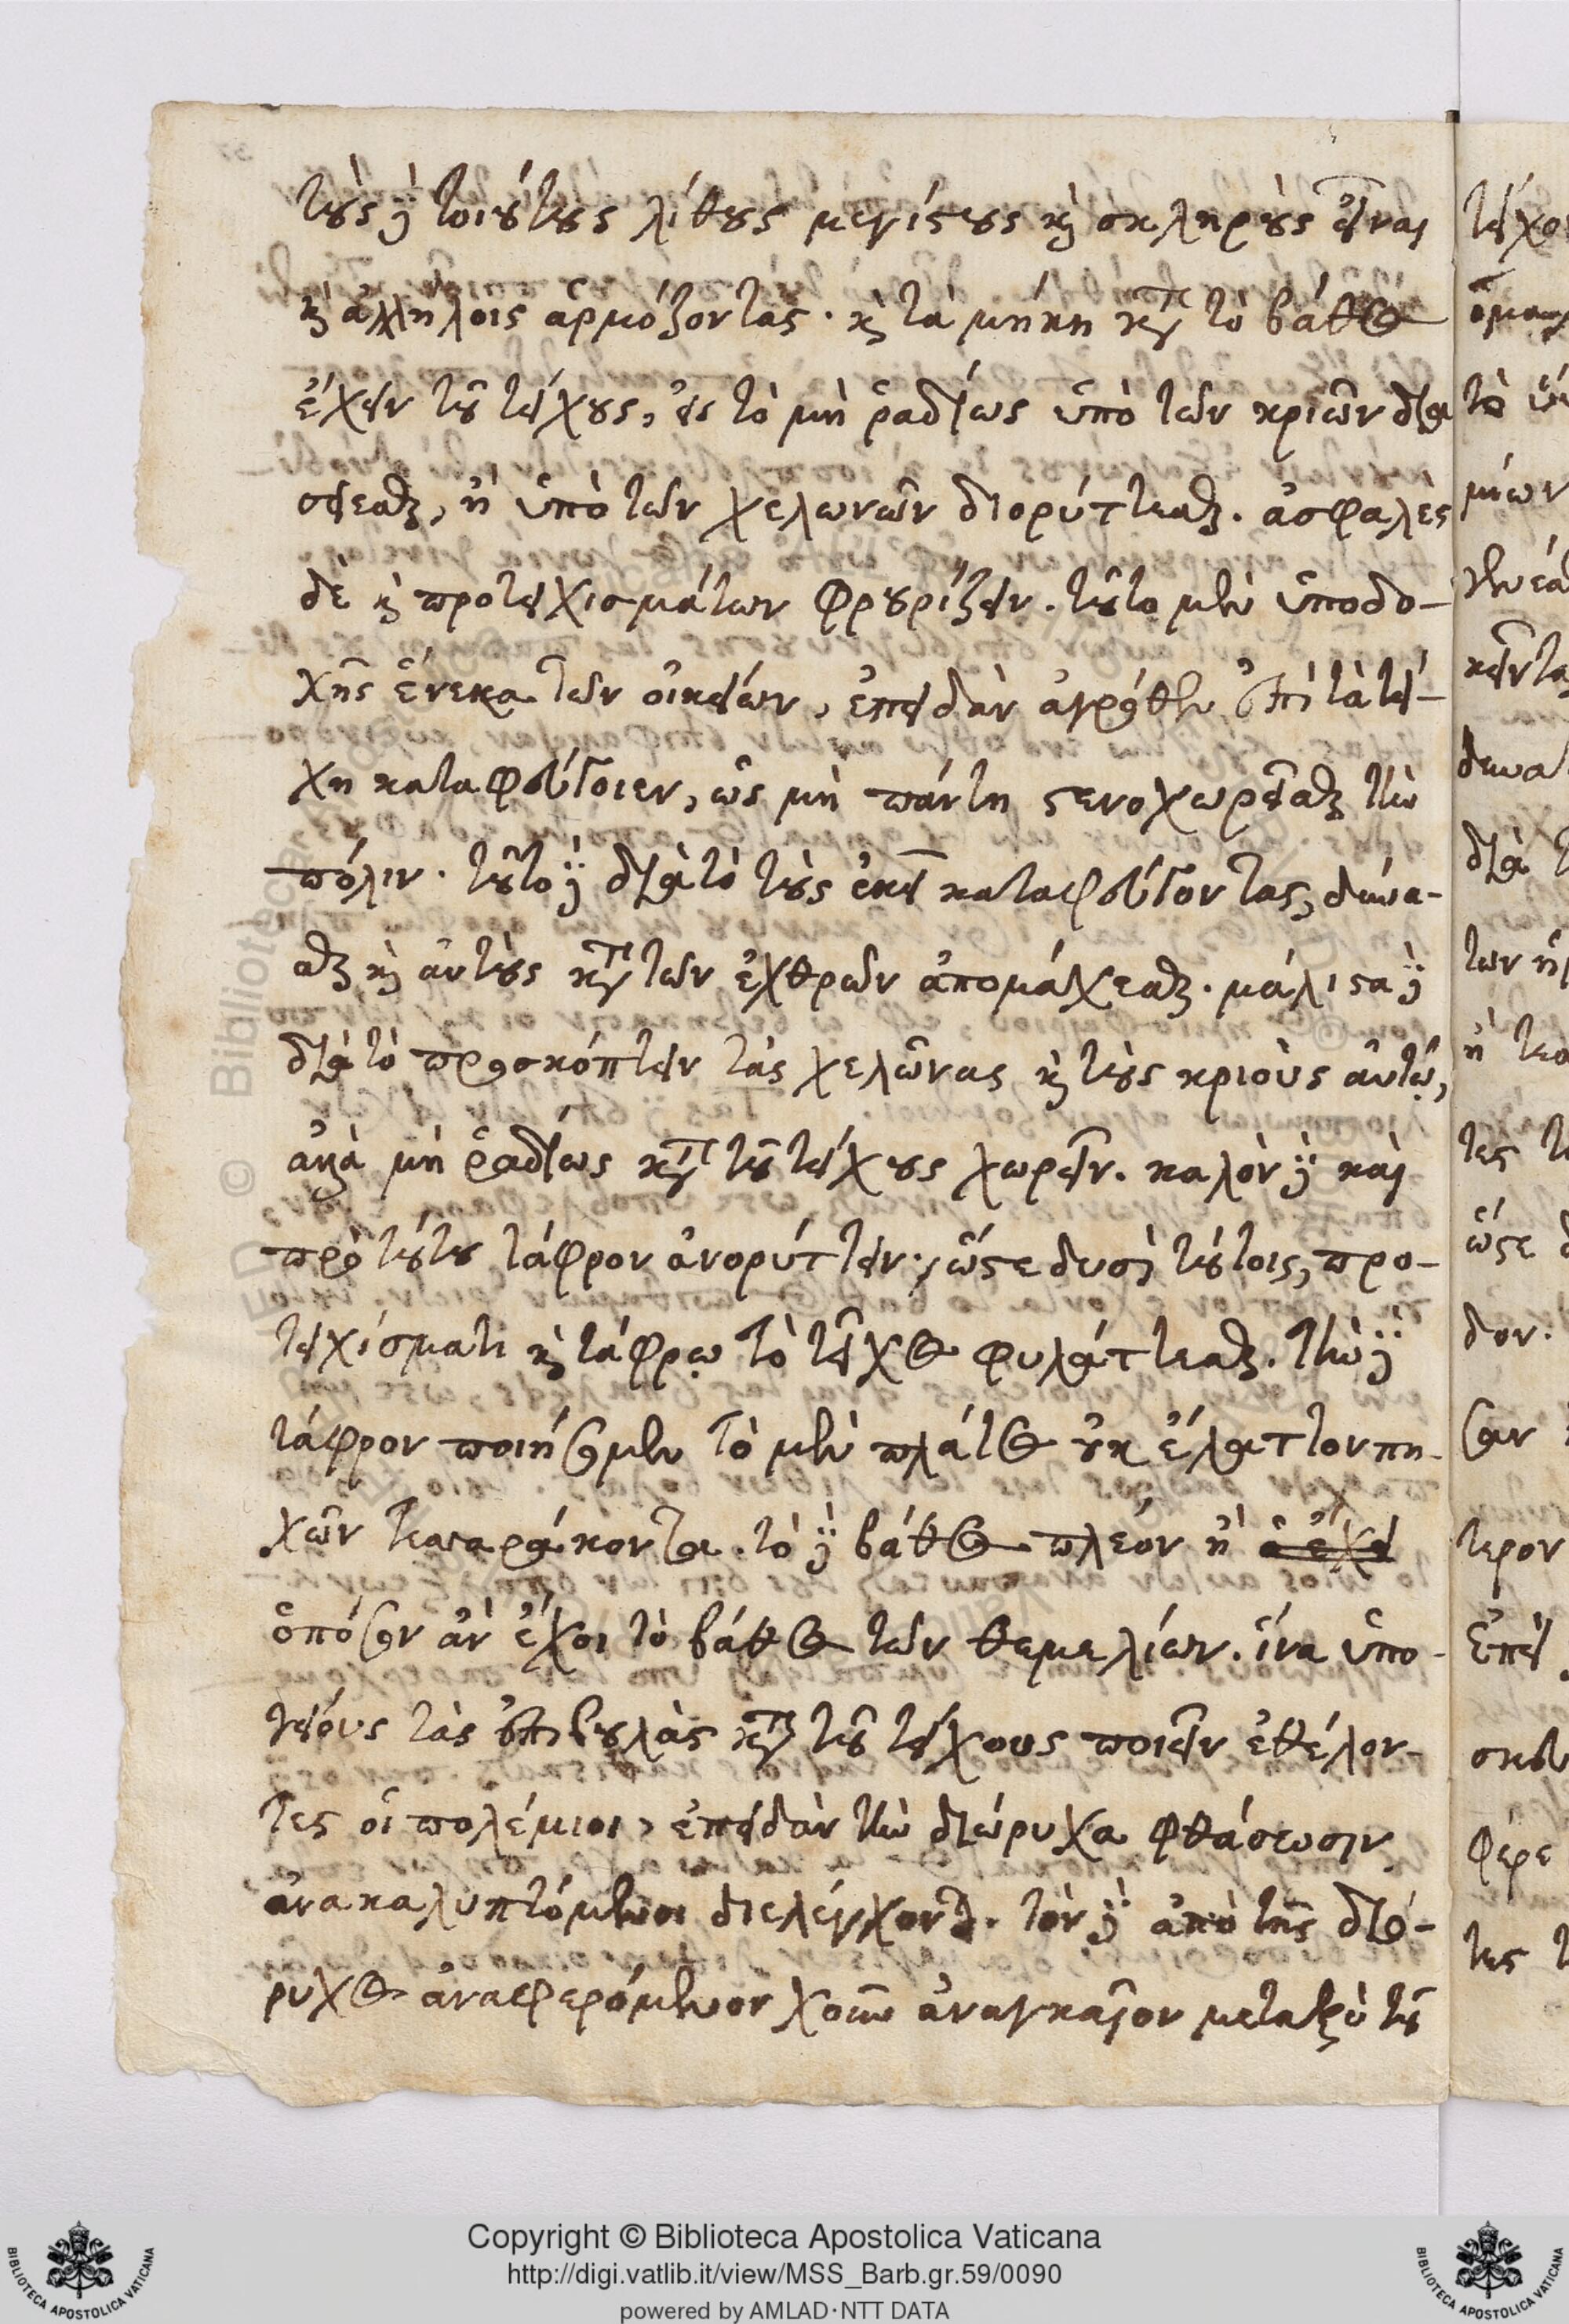 τοὺς δὲ τοιούτους λίθους μεγίστους καὶ σκληροὺς εἶναι
καὶ ἀλλήλοις ἁρμόζοντας· καὶ τὰ μήκη κατὰ τὸ βάθος
ἔχειν τοῦ τείχους, εἰς τὸ μὴ ῥαδίως ὑπὸ τῶν κριῶν δια
σείεσθαι, ἢ ὑπὸ τῶν χελωνῶν διορύττεσθαι. ἀσφαλὲς
δὲ καὶ προτειχισμάτων φροντίζειν. τοῦτο μὲν ὑποδο-
χῆς ἕνεκα τῶν οἰκείων, ἐπειδὰν ἀγρόθεν ἐπὶ τὰ τεί-
χη καταφεύγοιεν, ὡς μὴ πάντη στενοχωρεῖσθαι τὴν
πόλιν. τοῦτο δὲ διὰ τὸ τοὺς ἐκεῖ καταφεύγοντας, δύνα-
σθαι καὶ αὐτοὺς κατὰ τῶν ἐχθρῶν ἀπομάχεσθαι. μάλιστα δὲ
διὰ τὸ προσκόπτειν τὰς χελώνας καὶ τοὺς κριοὺς αὐτῷ,
ἀλλὰ μὴ ῥαδίως κατὰ τοῦ τείχους χωρεῖν. καλὸν δὲ καὶ
πρὸ τούτου τάφρον ἀνορύττειν· ὥστε δυσὶ τούτοις, προ-
τειχίσματι καὶ τάφρῳ τὸ τεῖχος φυλάττεσθαι. τὴν δὲ
τάφρον ποιήσομεν τὸ μὲν πλάτος οὐκ ἔλαττον πη-
χῶν τεσσαράκοντα. τὸ δὲ βάθος πλέον ἢ ὃ ἔχει
ὁπόσον ἂν ἔχοι τὸ βάθος τῶν θεμελίων. ἵνα ὑπο-
γείους τὰς ἐπιβουλὰς κατὰ τοῦ τείχους ποιεῖν ἐθέλον-
τες οἱ πολέμιοι, ἐπειδὰν τὴν διώρυχα φθάσωσιν
ἀνακαλυπτόμενοι διελέγχονται. τὸν δὲ ἀπὸ τῆς διό-
ρυχος ἀναφερόμενον χοῦν ἀναγκαῖον μεταξὺ τοῦ
Copyright © Biblioteca Apostolica Vaticana
http://digi.vatlib.it/view/MSS_Barb.gr.59/0090
powered by AMLAD·NTT DATA
BIBLIOTECA APOSTOLICA VATICANA
BIBLIOTECA APOSTOLICA VATICANA